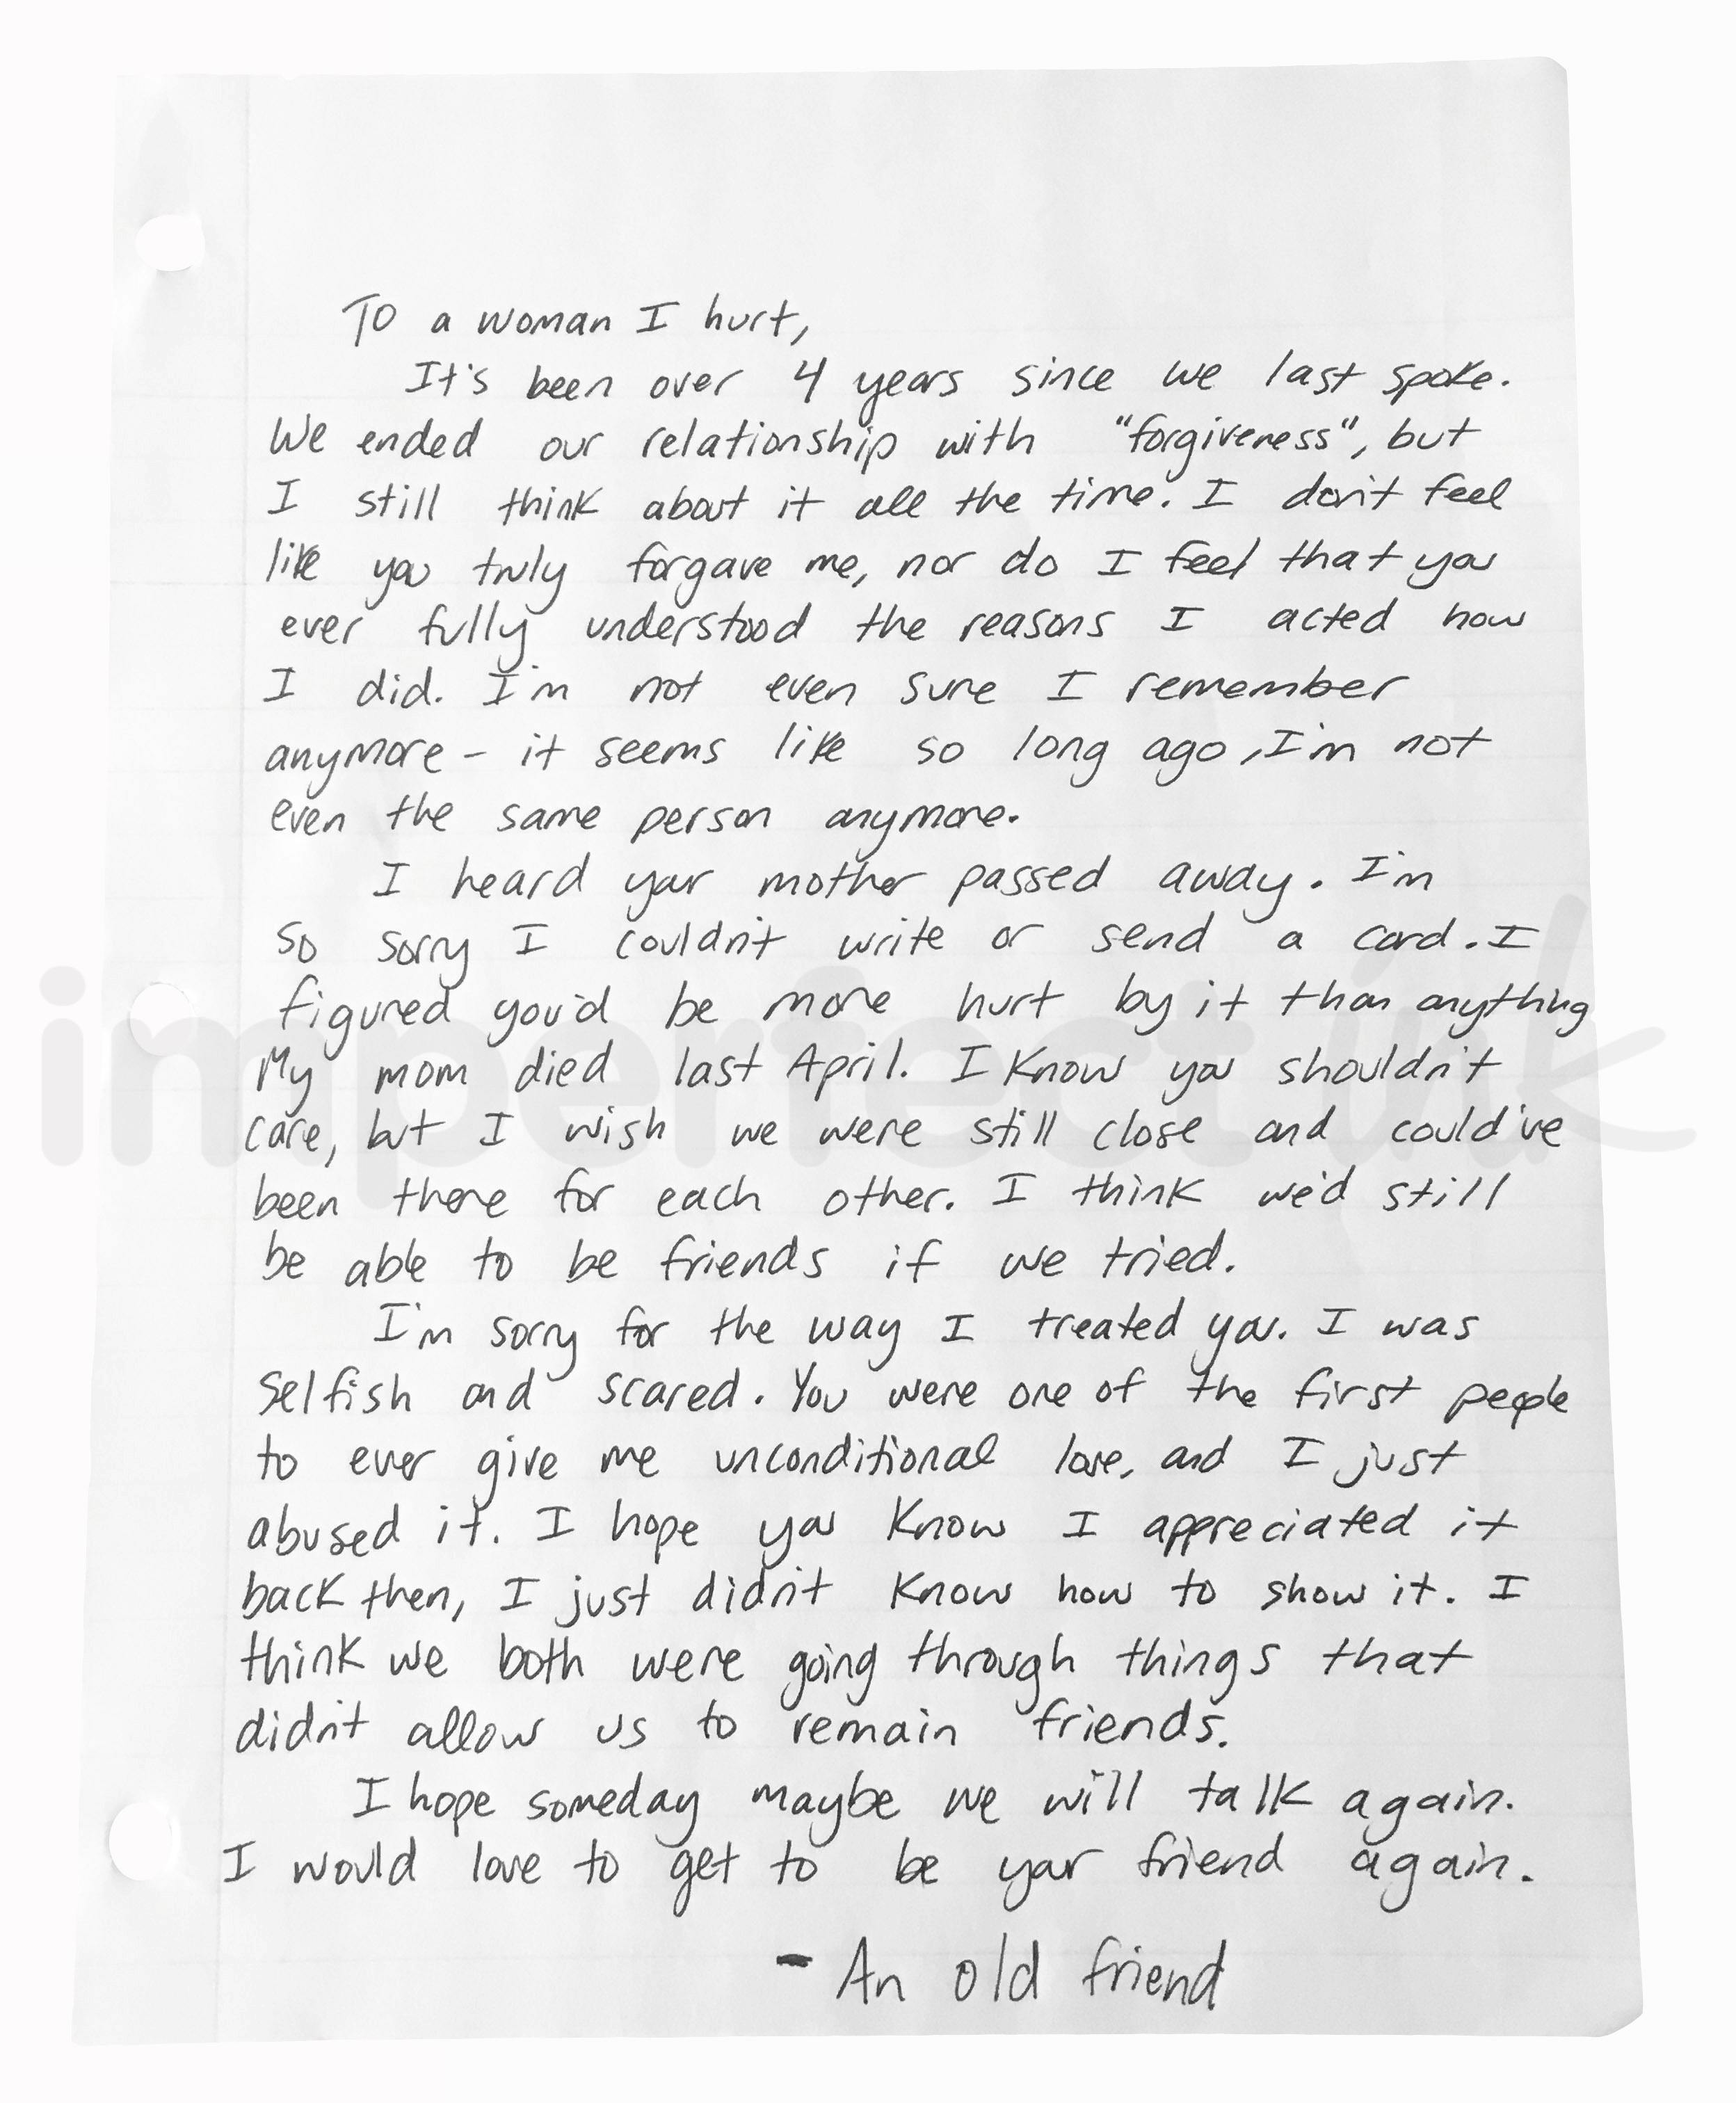 To a woman I hurt,
It's been over 4 years since we last spoke.
We ended our relationship with "forgiveness", but
I still think about it all the time. I don't feel
like you truly forgave me, nor do I feel that you
ever fully understood the reasons I acted how
I did. I'm not even sure I remember
anymore - it seems like so long ago, I'm not
even the same person anymore.
I heard your mother passed away. I'm
so sorry I couldn't write or send a card. I
figured you'd be more hurt by it than anything
My mom died last April. I know you shouldn't
care, but I wish we were still close and could've
been there for each other. I think we'd still
be able to be friends if we tried.
I'm sorry for the way I treated you. I was
selfish and scared. You were one of the first people
to ever give me unconditional love, and I just
abused it. I hope you know I appreciated it
back then, I just didn't know how to show it. I
think we both were going through things that
didn't allow us to remain friends.
I hope someday maybe we will talk again.
I would love to get to be your friend again.
- An old friend
imperfect ink